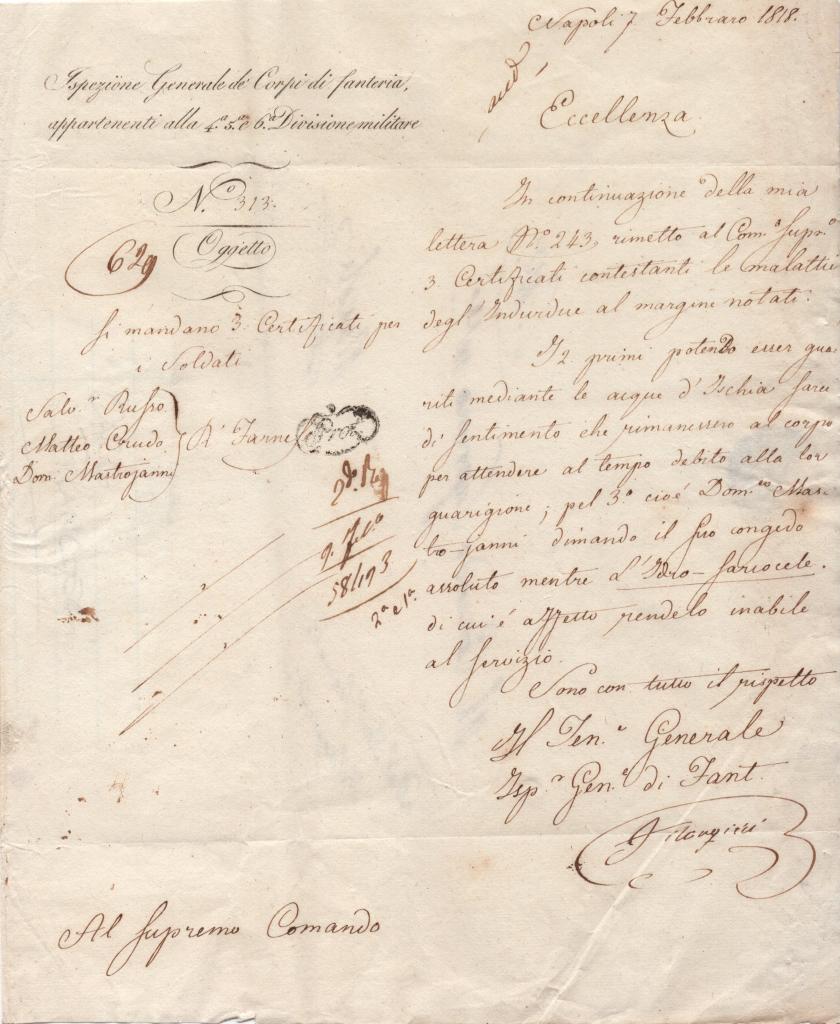 Napoli 7 Febbraro 1818.
Ispezione Generale de' Corpi di fanteria,
appartenenti alla 4.ª 5.ª e 6.ª Divisione militare
N.º 313.
Oggetto
629
Si mandano 3 Certificati per
i Soldati
Salv.r Russo
Matteo Crudo
Dom. Mastrojanni
R.l Farne
Eccellenza
In continuazione della mia
lettera N.º 243, rimetto al Com.º Supr.º
3 Certificati contestanti le malattie
degl'Individue al margine notati.
I 2 primi potendo esser gua
riti mediante le acque d'Ischia sarei
di sentimento che rimanessero al corpo
per attendere al tempo debito alla lor
guarigione; pel 3.º cioé Dom.co Mas-
tro-janni dimando il suo congedo
assoluto mentre l'Idro-sarcocele.
di cui é affetto rendelo inabile
al servizio.
Sono con tutto il rispetto
Il Ten.e Generale
Isp.r Gen.e di Fant.
Filangieri
58/193
2ª e 1ª
Al Supremo Comando